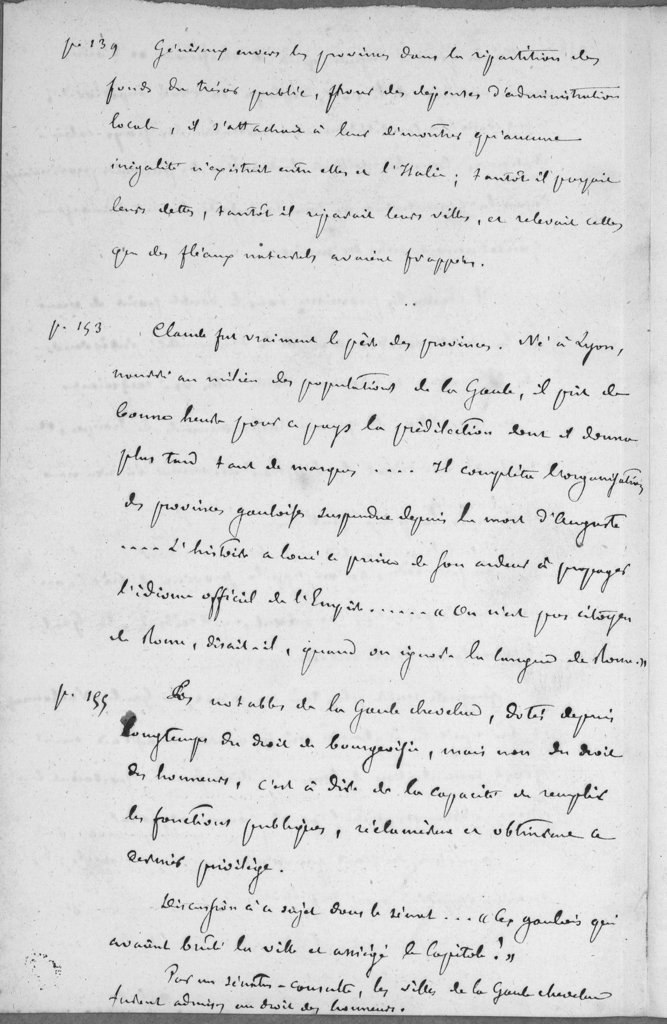 p. 139 Généreux envers les provinces dans la répartition des
fonds du trésor public, pour des dépenses d'administration
locale, il s'attachait à leur démontrer qu'aucune
inégalité n'existait entre elles et l'Italie ; tantôt il payait
leurs dettes, tantôt il réparait leurs villes, et relevait celles
que des fléaux naturels avaient frappées.
p. 153 Claude fut vraiment le père des provinces. Né à Lyon,
nourri au milieu des populations de la Gaule, il prit de
bonne heure pour ce pays la prédilection dont il donna
plus tard tant de marques .... Il compléta l'organisation
des provinces gauloises suspendue depuis la mort d'Auguste
.... L'histoire a loué ce prince de son ardeur à propager
l'idiome officiel de l'Empire ...... « On n'est pas citoyen
de Rome, disait-il, quand on ignore la langue de Rome. »
p. 155 Les notables de la Gaule chevelue, dotés depuis
longtemps du droit de bourgeoisie, mais non du droit
des honneurs, c'est à dire de la capacité de remplir
les fonctions publiques, réclamèrent et obtinrent ce
dernier privilège.
Discussion à ce sujet dans le sénat ... « Ces gaulois qui
avaient brûlé la ville et assiégé le Capitole ! »
Par un sénatus-consulte, les villes de la Gaule chevelue
furent admises au droit des honneurs.